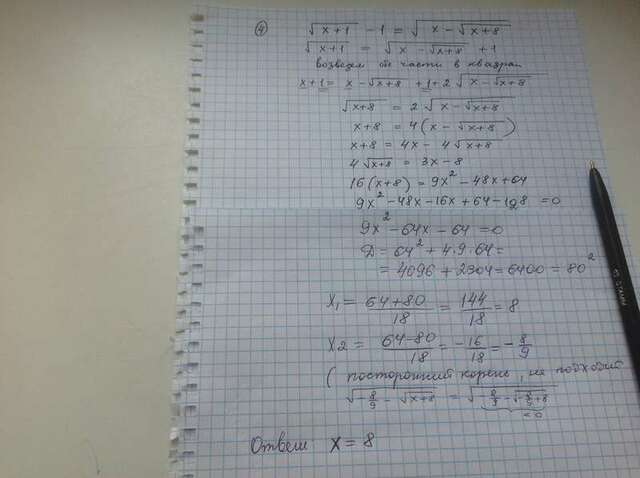 ④ √(x+1) - 1 = √(x - √(x+8))
√(x+1) = √(x - √(x+8)) + 1
возведем обе части в квадрат
x+1 = x - √(x+8) + 1 + 2√(x - √(x+8))
√(x+8) = 2√(x - √(x+8))
x+8 = 4(x - √(x+8))
x+8 = 4x - 4√(x+8)
4√(x+8) = 3x - 8
16(x+8) = 9x² - 48x + 64
9x² - 48x - 16x + 64 - 128 = 0
9x² - 64x - 64 = 0
D = 64² + 4·9·64 =
= 4096 + 2304 = 6400 = 80²
x₁ = (64+80)/18 = 144/18 = 8
x2 = (64-80)/18 = -16/18 = -8/9
(посторонний корень, не подходит
√(-8/9 - √(x+8)) = √(-8/9 - √(-8/9+8))
<0
Ответ x = 8